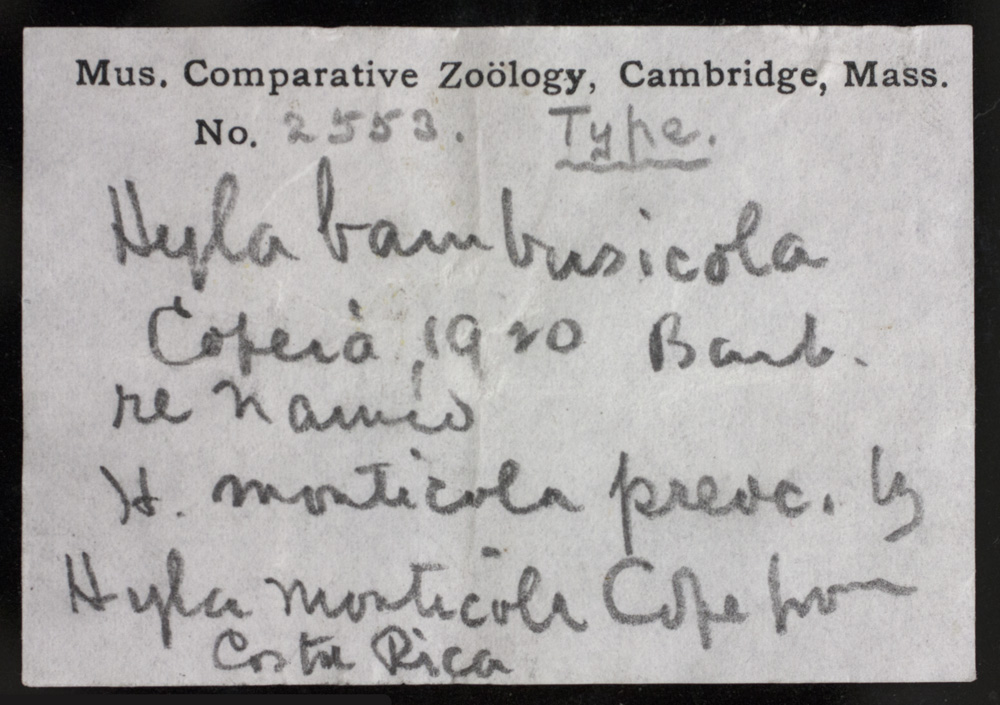 Mus. Comparative Zoölogy, Cambridge, Mass.
No. 2553. Type.
Hyla bambusicola
Copeia, 1920 Barb.
re Naméd
H. monticola preoc. by
Hyla monticola Cope from
Costa Rica